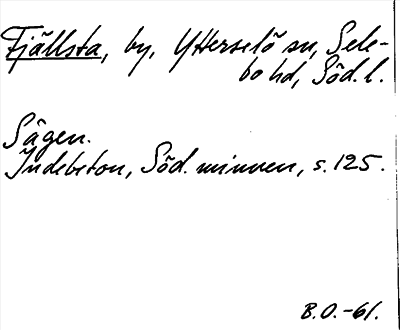 Fjällsta, by, Ytterselö sn, Sele-
bo hd, Söd. l.
Sägen.
Indebetou, Söd. minnen, s. 125.
B.O.-61.